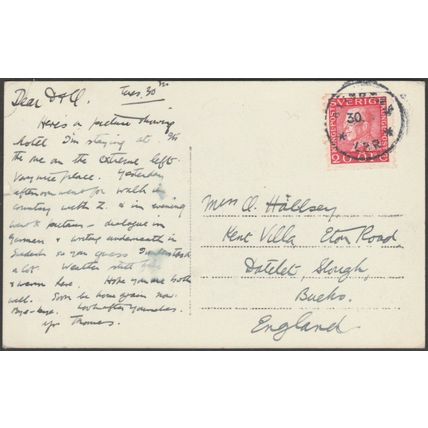 Dear D & O. Tues. 30th
Here's a picture showing
hotel I'm staying at
the one on the extreme left
Very nice place. Yesterday
afternoon went for walk in
country with & in evening
went pictures - dialogue in
German & writing underneath in
Swedish so you guess I understood
a lot. Weather still
& warm here. Hope you are both
well. Soon be home again now.
Bye-bye. Look after yourselves.
Thomas.
SVERIGE
30
Miss O. Hallsey
Kent Villa, Eton Road,
Datchet, Slough,
Bucks.
England